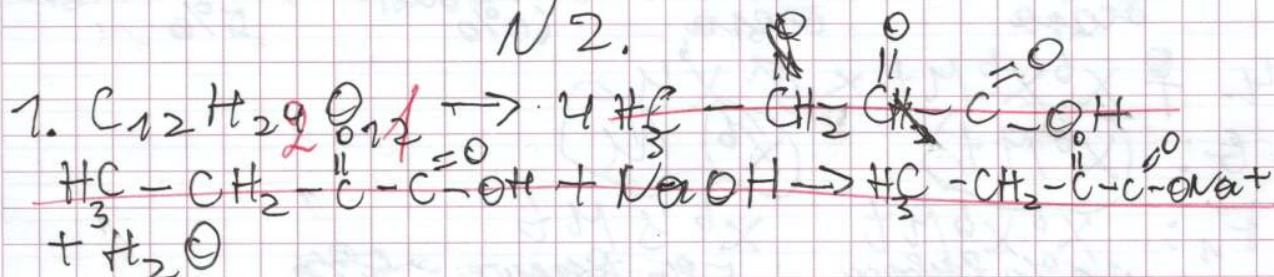 N 2.
1. C₁₂H₂₂O₁₁ → 4 H₃C – CH₂ – C(=O) – C(=O)–OH
H₃C – CH₂ – C(=O) – C(=O)–OH + NaOH → H₃C – CH₂ – C(=O) – C(=O)–ONa +
+ H₂O